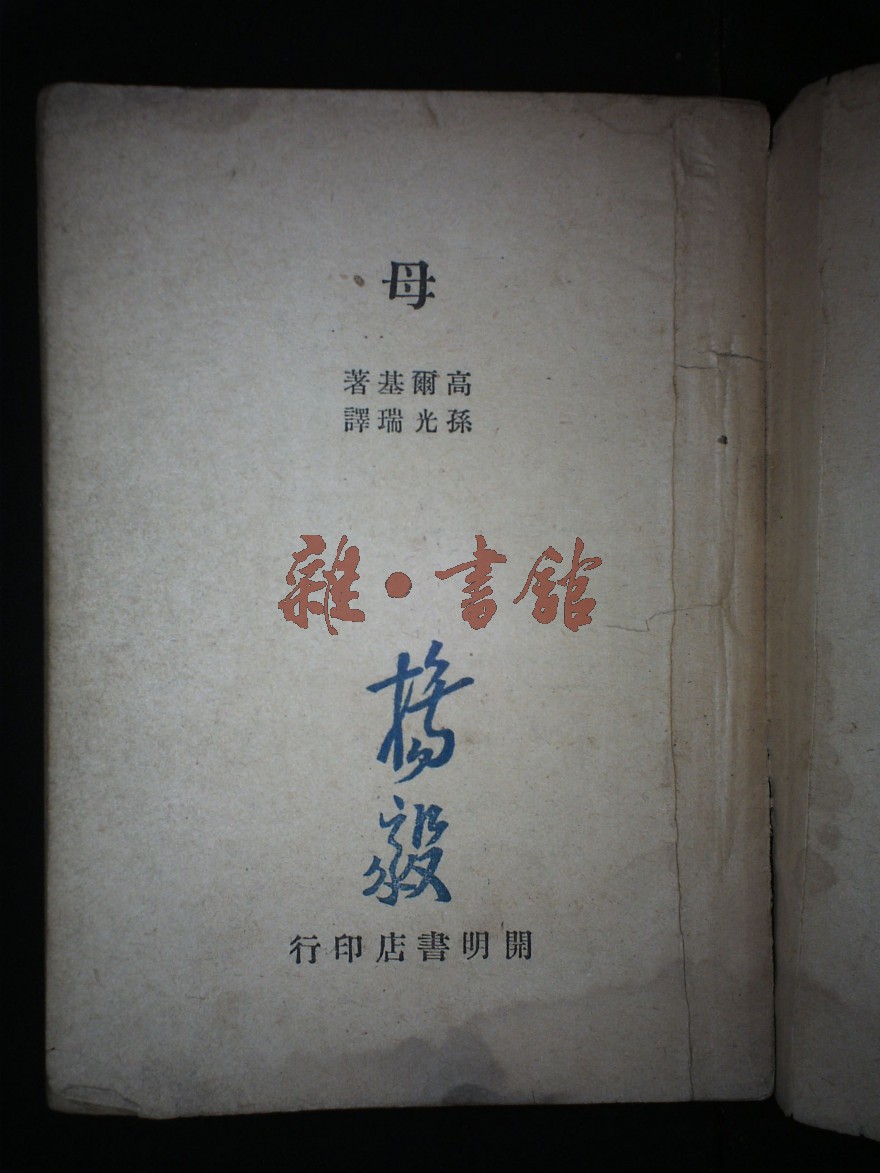 母
高爾基著
孫光瑞譯
雜·書館
楊
毅
開明書店印行